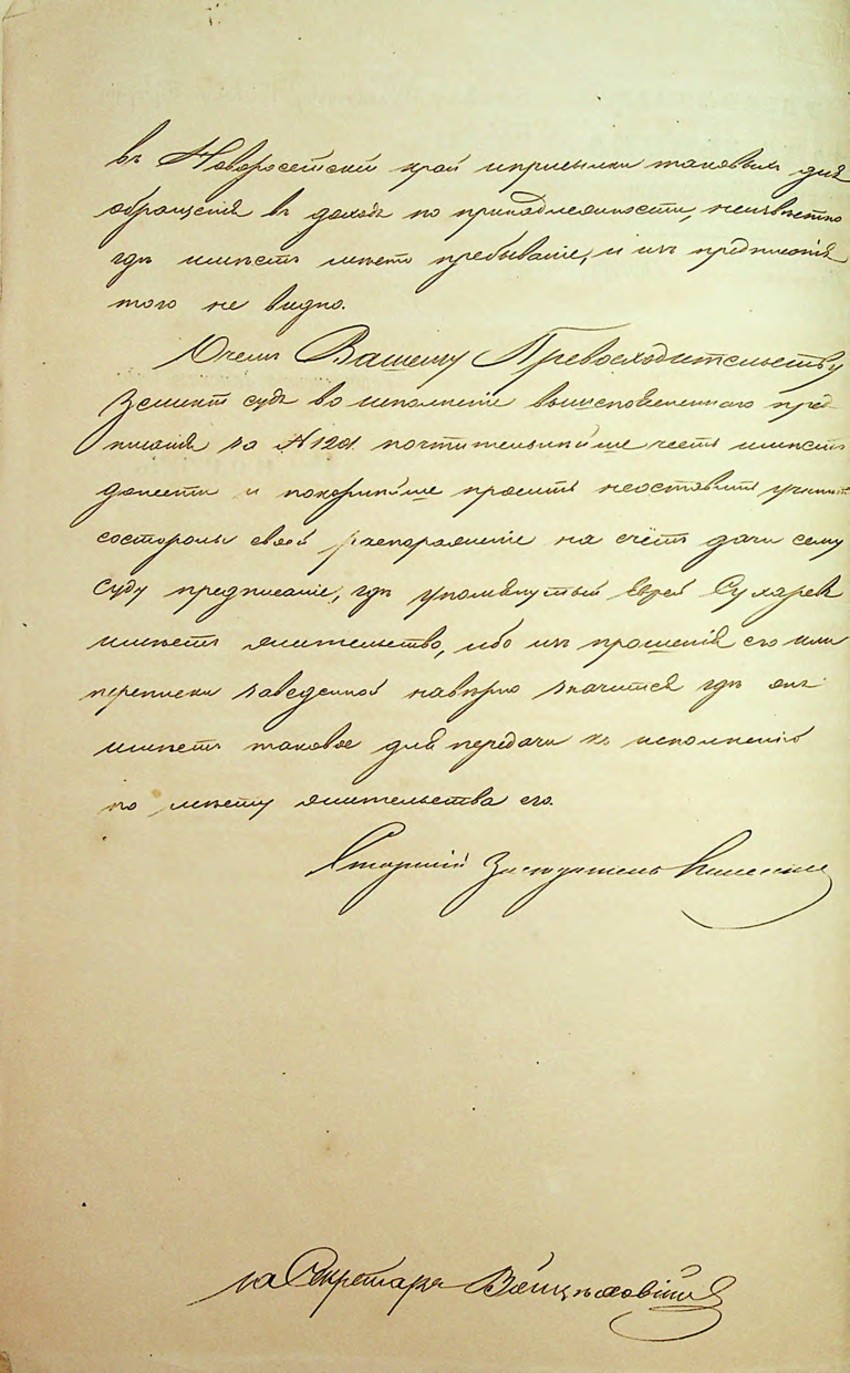 въ Новоросейскій край иприсылки таковыхъ для
обращенія въ доходъ по принадлежности, неизвѣстно
гдѣ имѣетъ мѣсто пребываніе, и изъ предписанія
того не видно.
Очемъ Вашему Превосходительству
Земскій судъ во исполненіе вышепоясненнаго пред-
писанія за №1201 почтительнѣйше честь имѣетъ
донести и покорнѣйше проситъ неоставить учинить
состороны своей распоряженіе на счётъ дачи сему
суду предписаніе, гдѣ упомянутый Еврей Сухарев
имѣетъ жительство, ибо изъ прошенія его или
переписки заведенной навѣрно значится гдѣ онъ
имѣетъ таковое для передачи къ исполненію
по мѣсту жительства его.
Старшій Засѣдатель
за Секретаря